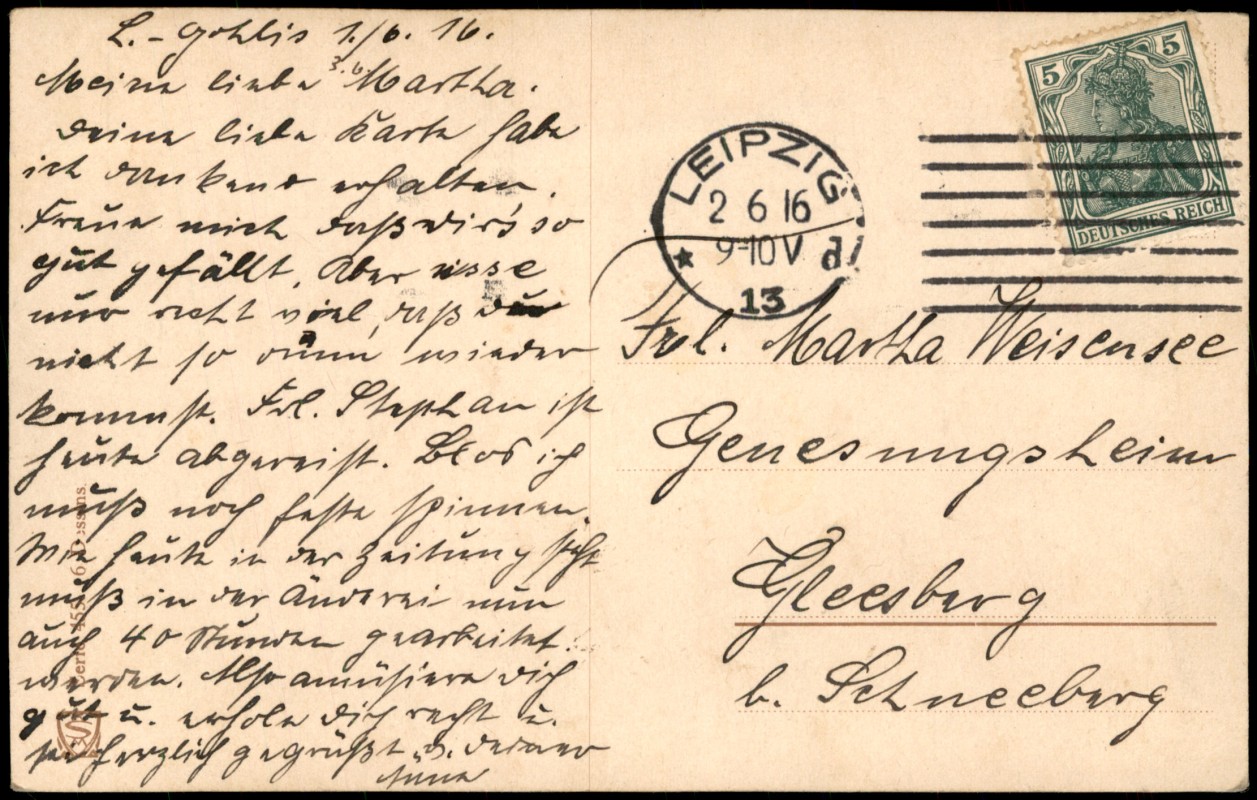 L.-Gohlis 1./6. 16.
Meine liebe Martha.
Deine liebe Karte habe
ich dankend erhalten.
Freue mich daß dir's so
gut gefällt. Aber esse
nur recht viel, daß du
nicht so dünn wieder
kommst. Frl. Stephan ist
heute abgereist. Blos ich
muß noch feste spinnen.
Wie heute in der Zeitung steht
muß in der Änderei nun
auch 40 Stunden gearbeitet
werden. Also amüsiere dich
gut u. erhole dich recht u.
sei herzlich gegrüßt v. deiner
Änne
LEIPZIG
2 6 16
9-10 V
13
5 5
DEUTSCHES REICH
Frl. Martha Weisensee
Genesungsheim
Gleesberg
b. Schneeberg
Serie